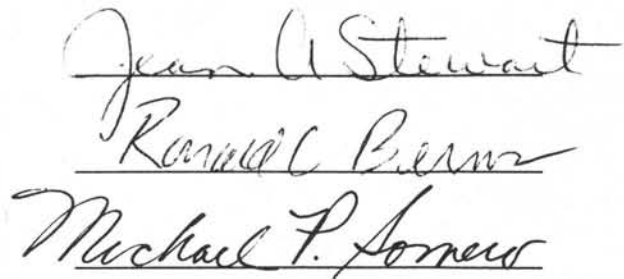 Jean A Stewart
Ronald C Berns
Michael P. Somero